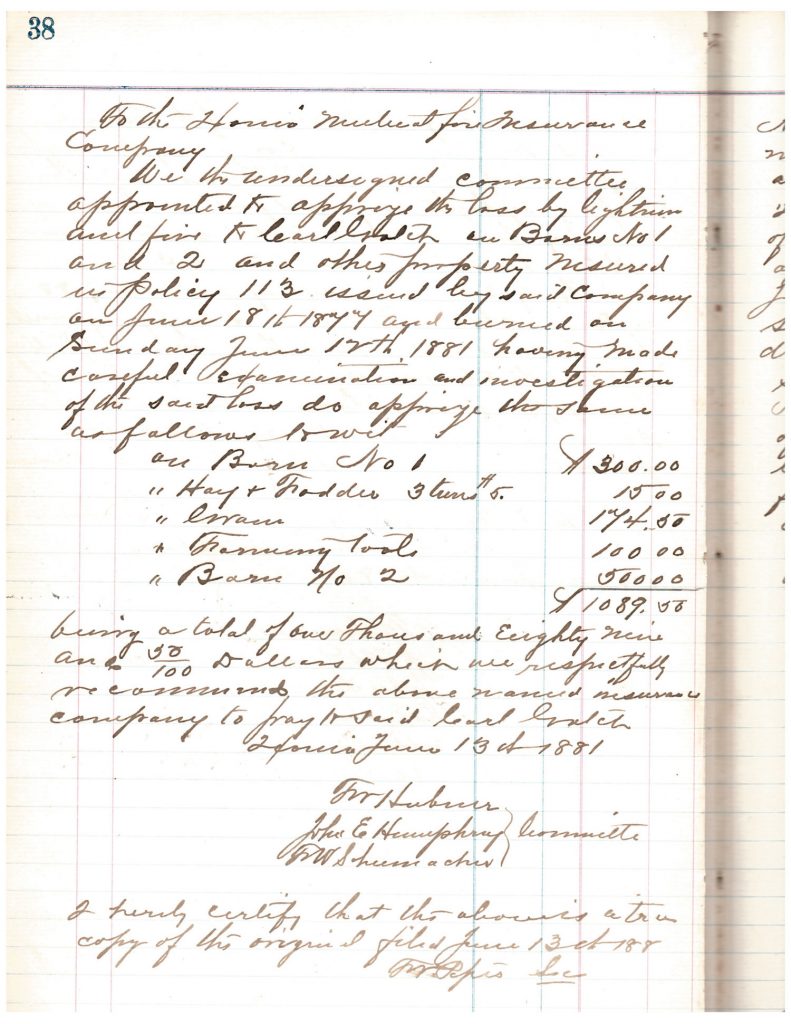 38
To the Honio Mutual fire Insurance
Company
We the undersigned committee
appointed to apprize the loss by lightnin
and fire to Carl Gatch on Barns No 1
and 2 and other property Insured
in Policy 113 issued by said Company
on June 18th 1877 and burned on
Sunday June 12th 1881 having made
careful examination and investigation
of the said loss do apprize the same
as follows to wit
on Barn No 1 $ 300.00
" Hay & Fodder 3 tuns $5. 15 00
" Grain 174.50
" Farming tools 100 00
" Barn No 2 500 00
$ 1089.50
being a total of one Thousand Eighty Nine
and 50/100 Dollars which we respectfully
recommend the above named insurance
company to pay to said Carl Gatch
June 13th 1881
FW Hubner
John E Humphrey Committe
FW Schumacher
I herby certify that the above is a true
copy of the original filed June 13th 188
Sec